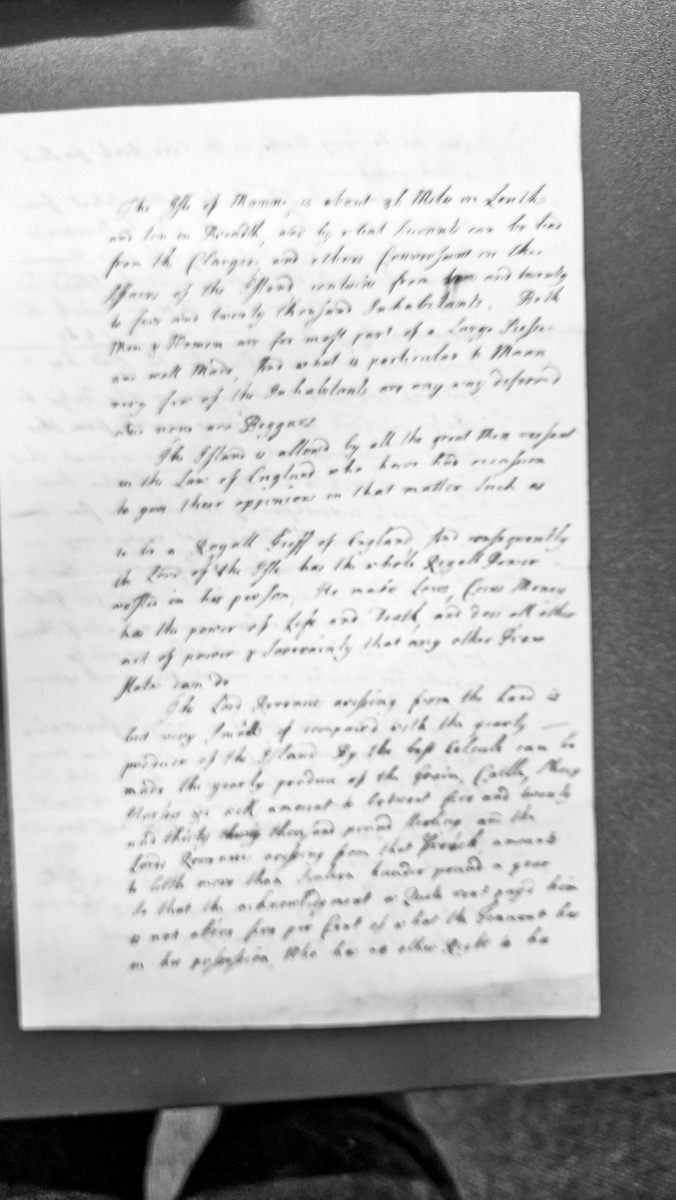 The Isle of Mann is about 31 Miles in Lenth
and ten in Breadth, and by what Accounts can be had
from the Clargie, and others Conversant in the
Affaires of the Island contains from and twenty
to five and twenty thousand Inhabitants. Both
Men & Women are for most part of a Large
are well Made, And what is particular to Mann
very few of the Inhabitants are any way deformed
and none are Beggars
The Island is allowd by all the great Men versant
in the Law of England who have had occasion
to give their oppinions in that matter Such as
to be a Royall Fieff of England And consequently
the Lord of the Isle has the whole Regall Power
vested in his person. He makes Laws, Coins Money
has the power of Life and Death, and does all other
act of power & Soverainity that any other Free
State can do
The Lord Revenue arissing from the Land is
but very Small if compaired with the yearly
produce of the Island By the best Calcule can be
made the yearly produce of the Grain, Cattle, Sheep
Horses &c will amount to betweet five and twenty
and thirty thousand pound Sterling and the
Lords Revenues arissing from that amounts
to little more than hunder pound a year
So that the acknowledgment or Quit rent payd him
is not above five per Cent of what the Tennant has
in his possession, Who has no other Right to his